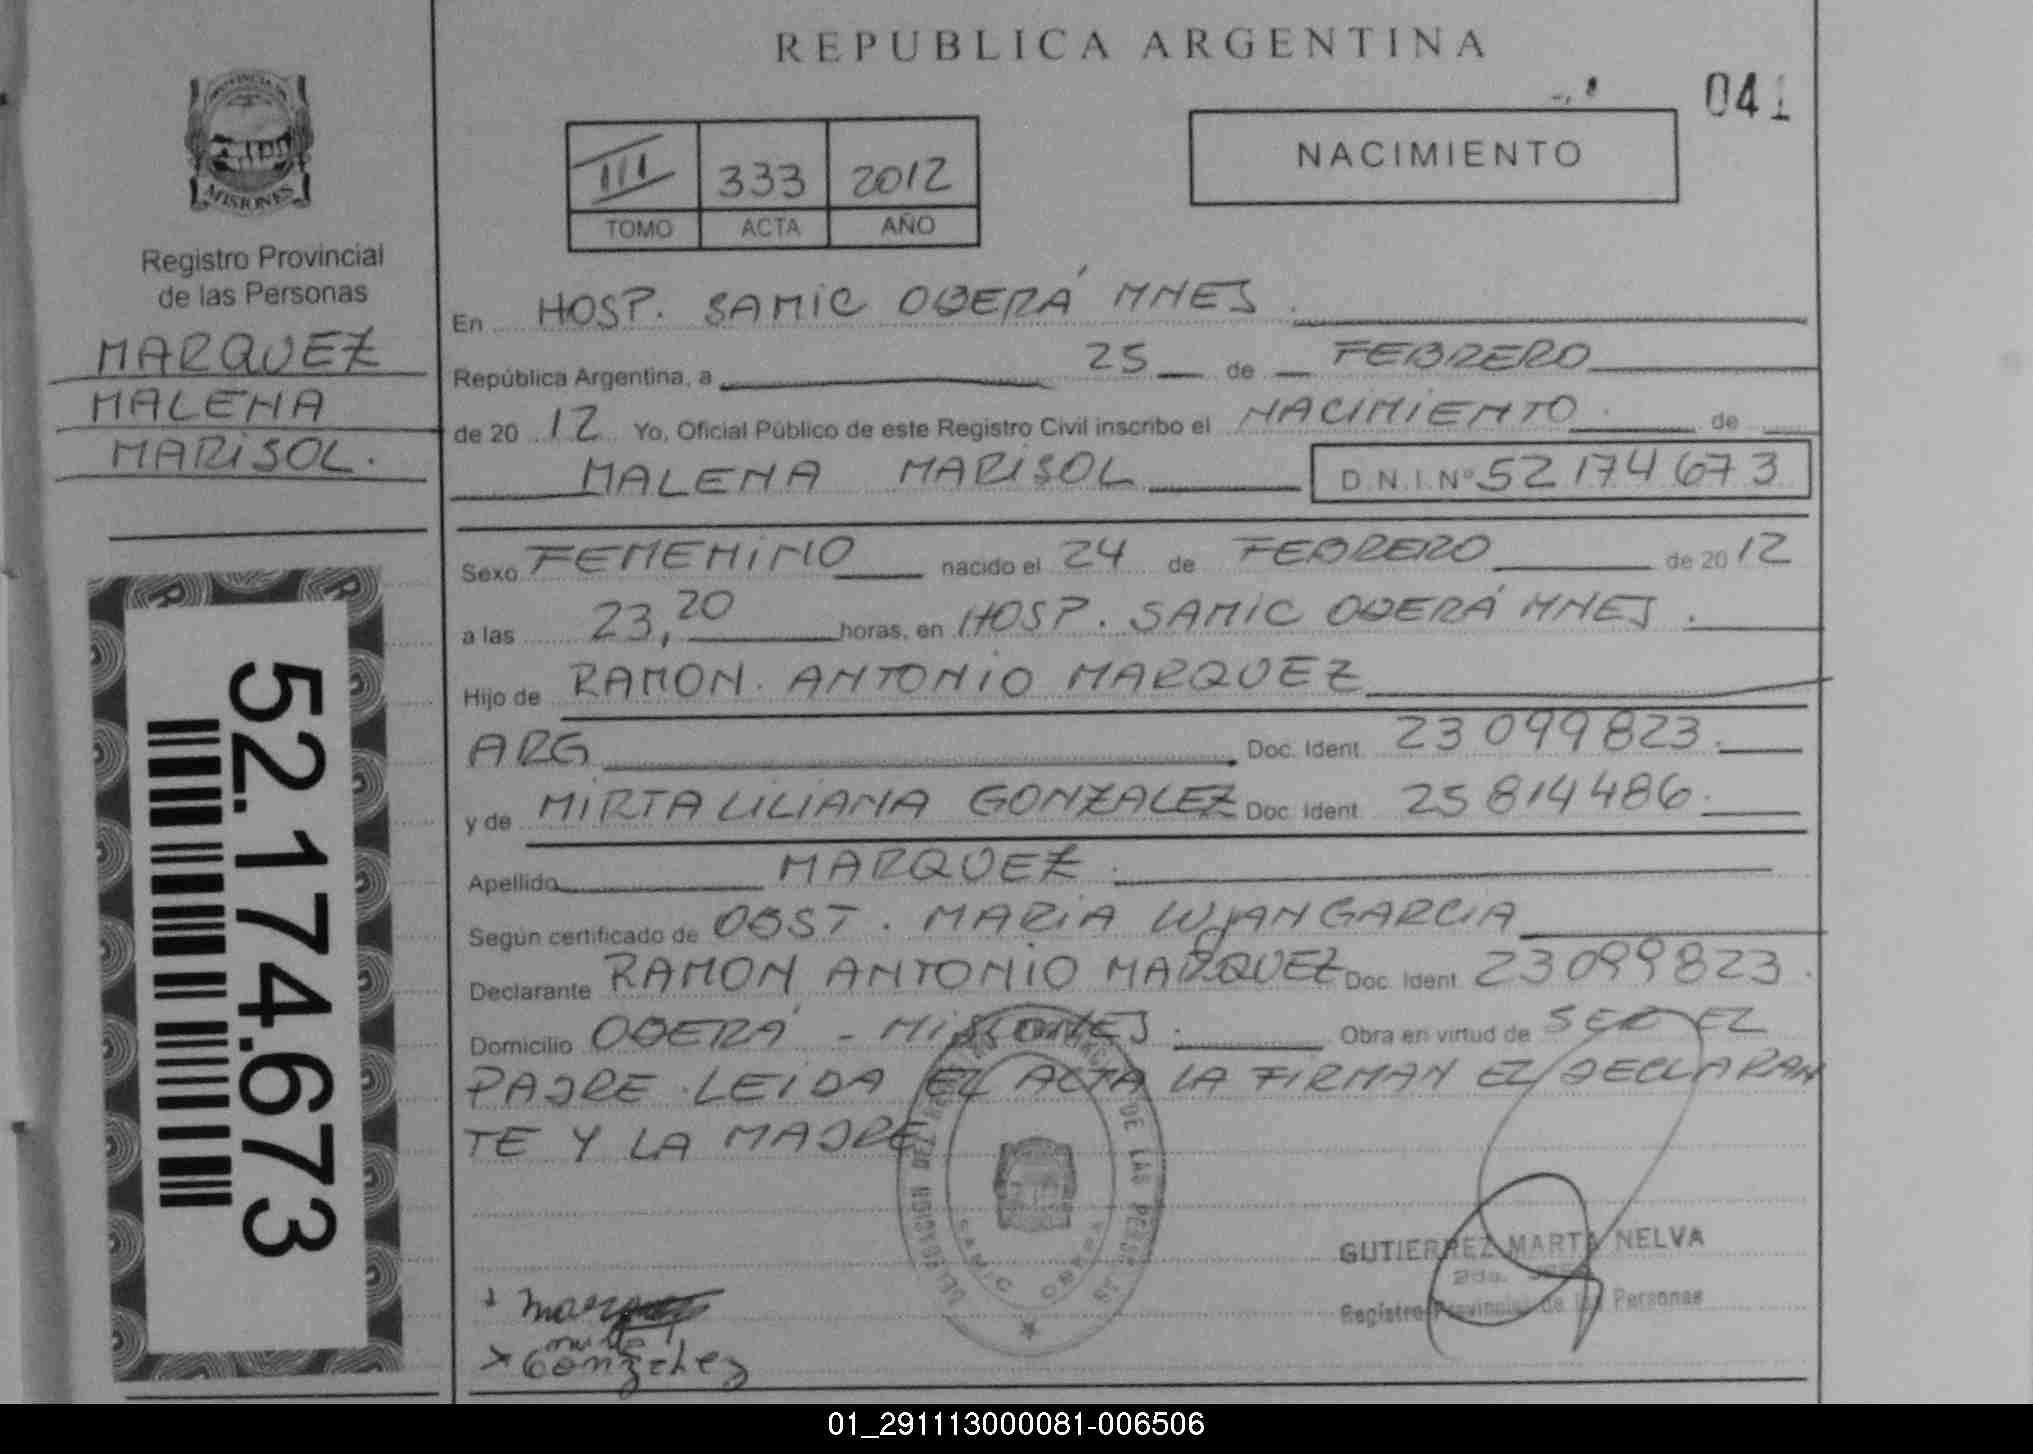 REPUBLICA ARGENTINA
041
NACIMIENTO
III 333 2012
TOMO ACTA AÑO
PROVINCIA DE
MISIONES
Registro Provincial
de las Personas
MARQUEZ
MALENA
MARISOL.
52.174.673
En HOSP. SAMIC OBERÁ MNES.
República Argentina, a 25 de FEBRERO
de 20 12 Yo, Oficial Público de este Registro Civil inscribo el NACIMIENTO de
MALENA MARISOL D.N.I.Nº 52174673
Sexo FEMENINO nacido el 24 de FEBRERO de 20 12
a las 23,20 horas, en HOSP. SAMIC OBERÁ MNES.
Hijo de RAMON. ANTONIO MARQUEZ
ARG Doc. Ident. 23099823.
y de MIRTA LILIANA GONZALEZ Doc. Ident. 25814486.
Apellido MARQUEZ.
Según certificado de OBST. MARIA LUJAN GARCIA
Declarante RAMON ANTONIO MARQUEZ Doc. Ident. 23099823.
Domicilio OBERÁ - MISIONES. Obra en virtud de SER EL
PADRE. LEIDA EL ACTA LA FIRMAN EL DECLARAN
TE Y LA MADRE
SAMIC OBERA
GUTIERREZ MARTA NELVA
Registro Provincial de las Personas
Marquez
Mirta
Gonzalez
01_291113000081-006506